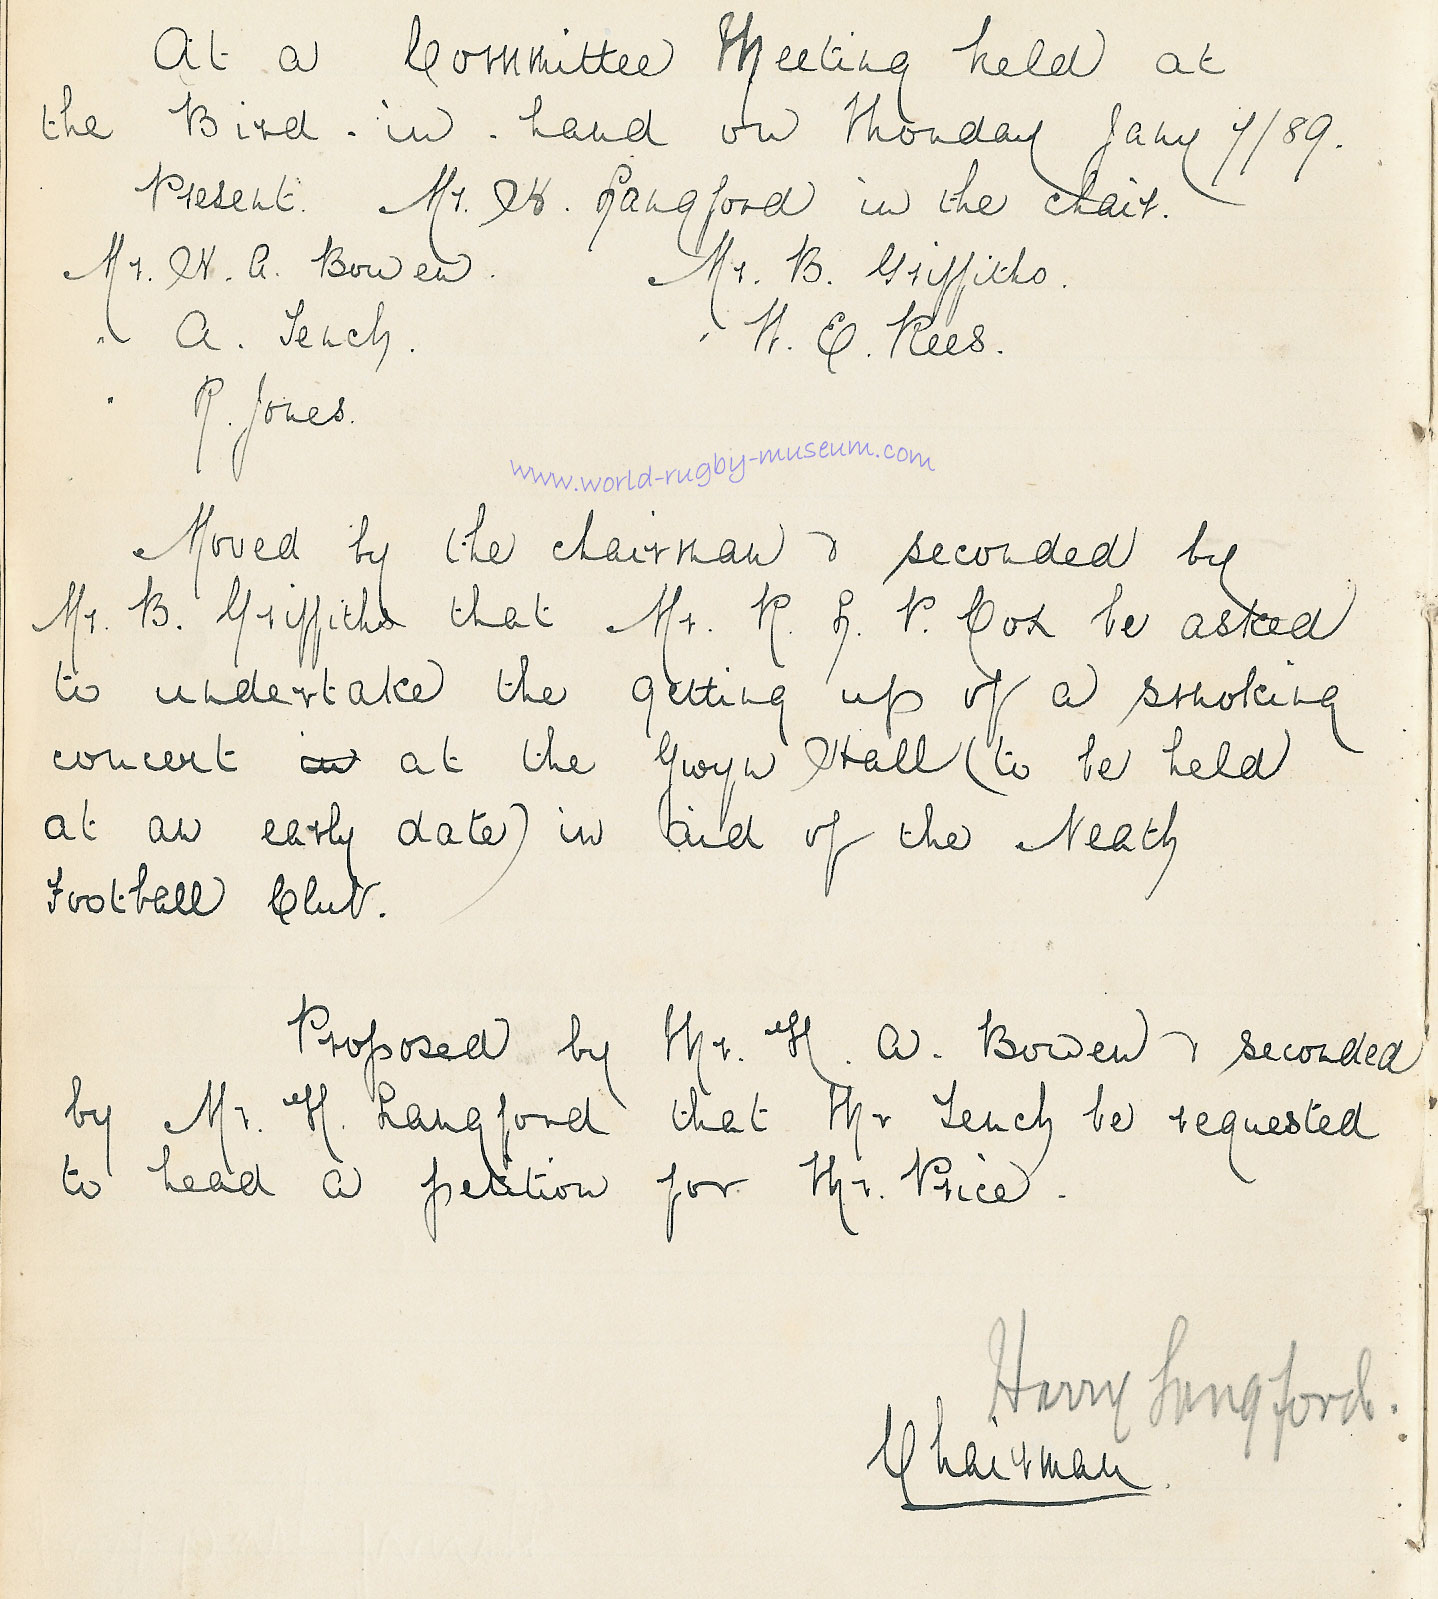 At a Committee Meeting held at
the Bird-in-hand on Monday Jany 7/89.
Present. Mr. H. Langford in the chair.
Mr. H. A. Bowen. Mr. B. Griffiths.
" A. Tench. " W. E. Rees.
" R. Jones.
www.world-rugby-museum.com
Moved by the chairman & seconded by
Mr. B. Griffiths that Mr. R. L. P. Cox be asked
to undertake the getting up of a smoking
concert in at the Gwyn Hall (to be held
at an early date) in aid of the Neath
Football Club.
Proposed by Mr. H. A. Bowen & seconded
by Mr. H. Langford that Mr Tench be requested
to head a petition for Mr. Price.
Harry Langford.
Chairman.